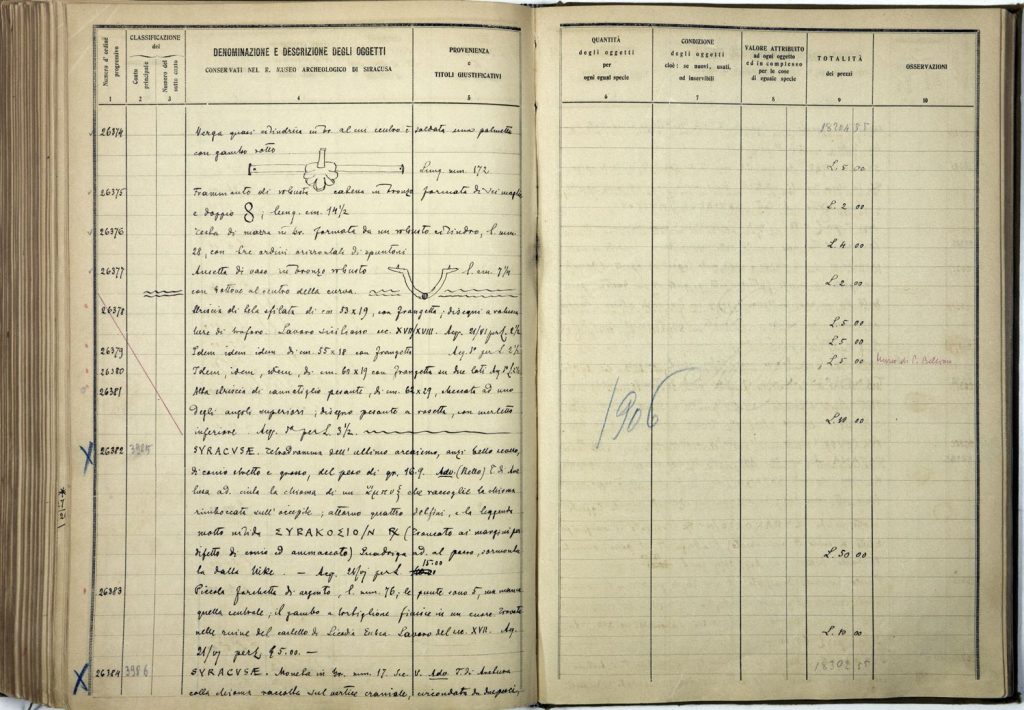 Numero d'ordine progressivo
CLASSIFICAZIONE del
Conto principale
Numero del sotto conto
DENOMINAZIONE E DESCRIZIONE DEGLI OGGETTI
CONSERVATI NEL R. MUSEO ARCHEOLOGICO DI SIRACUSA
PROVENIENZA
e
TITOLI GIUSTIFICATIVI
1 2 3 4 5
26374 Verga quasi cilindrica in br. al cui centro è saldata una palmetta
con gambo rotto
Lung. mm. 172
26375 Frammento di robusta catena in bronzo formata di sei maglie
e doppio 8; lung. cm. 14½
26376 Testa di mazza in br. formata da un robusto cilindro, l. mm.
28, con tre ordini orizzontali di spuntoni
26377 Ansetta di vaso in bronzo robusto l. cm. 7¼
con bottone al centro della curva.
26378 Striscia di tela sfilata di cm 53 x 19, con frangetta; disegni a
di traforo. Lavoro siciliano sec. XVII/XVIII. Acq.
26379 Idem idem idem di cm. 55 x 18 con frangetta
26380 Idem, idem, idem, di cm. 69 x 19 con frangetta su due lati
26381 Alta striscia di pesante, di cm. 62 x 29, ad uno
degli angoli superiori; disegno pesante a rosetta, con merletto
inferiore. Acq. per L. 3½.
26382 3985 SYRACUSAE. Tetradramma dell'ultimo arcaismo, anzi bello rosso,
di conio stretto e grosso, del peso di gr. 16.9. Adv. (Retto) T. di
ad. cinta la chioma di un che raccoglie la chioma
rimboccata sull'occipite; attorno quattro delfini, e la leggenda
molto nitida ΣYRAKOΣIO/N (troncato ai margini per
difetto di conio ed ammaccato) Quadriga ad. al passo, sormonta
ta dalla Nike. — Acq. per L. 15.00
26383 Piccola forchetta di argento, l. mm. 76; le punte sono 5, ma manca
quella centrale; il gambo a torbiglione finisce in un cuore. Trovata
nelle ruine del castello di Licodia Eubea. Lavoro del sec. XVII. Acq.
per L. 5.00. —
26384 3986 SYRACUSAE. Moneta in br. mm. 17. Sec. V. Adv. T. di Aretusa
colla chioma raccolta sul vertice craniale, circondata da due
QUANTITÀ
degli oggetti
per
ogni egual specie
CONDIZIONE
degli oggetti
cioè: se nuovi, usati,
od inservibili
VALORE ATTRIBUITO
ad ogni oggetto
ed in complesso
per le cose
di eguale specie
TOTALITÀ
dei prezzi
OSSERVAZIONI
6 7 8 9 10
L. 5 00
L. 2 00
L. 4 00
L. 2 00
L. 5 00
L. 5 00
L. 5 00
L. 10 00
1906
L. 50 00
L. 10 00